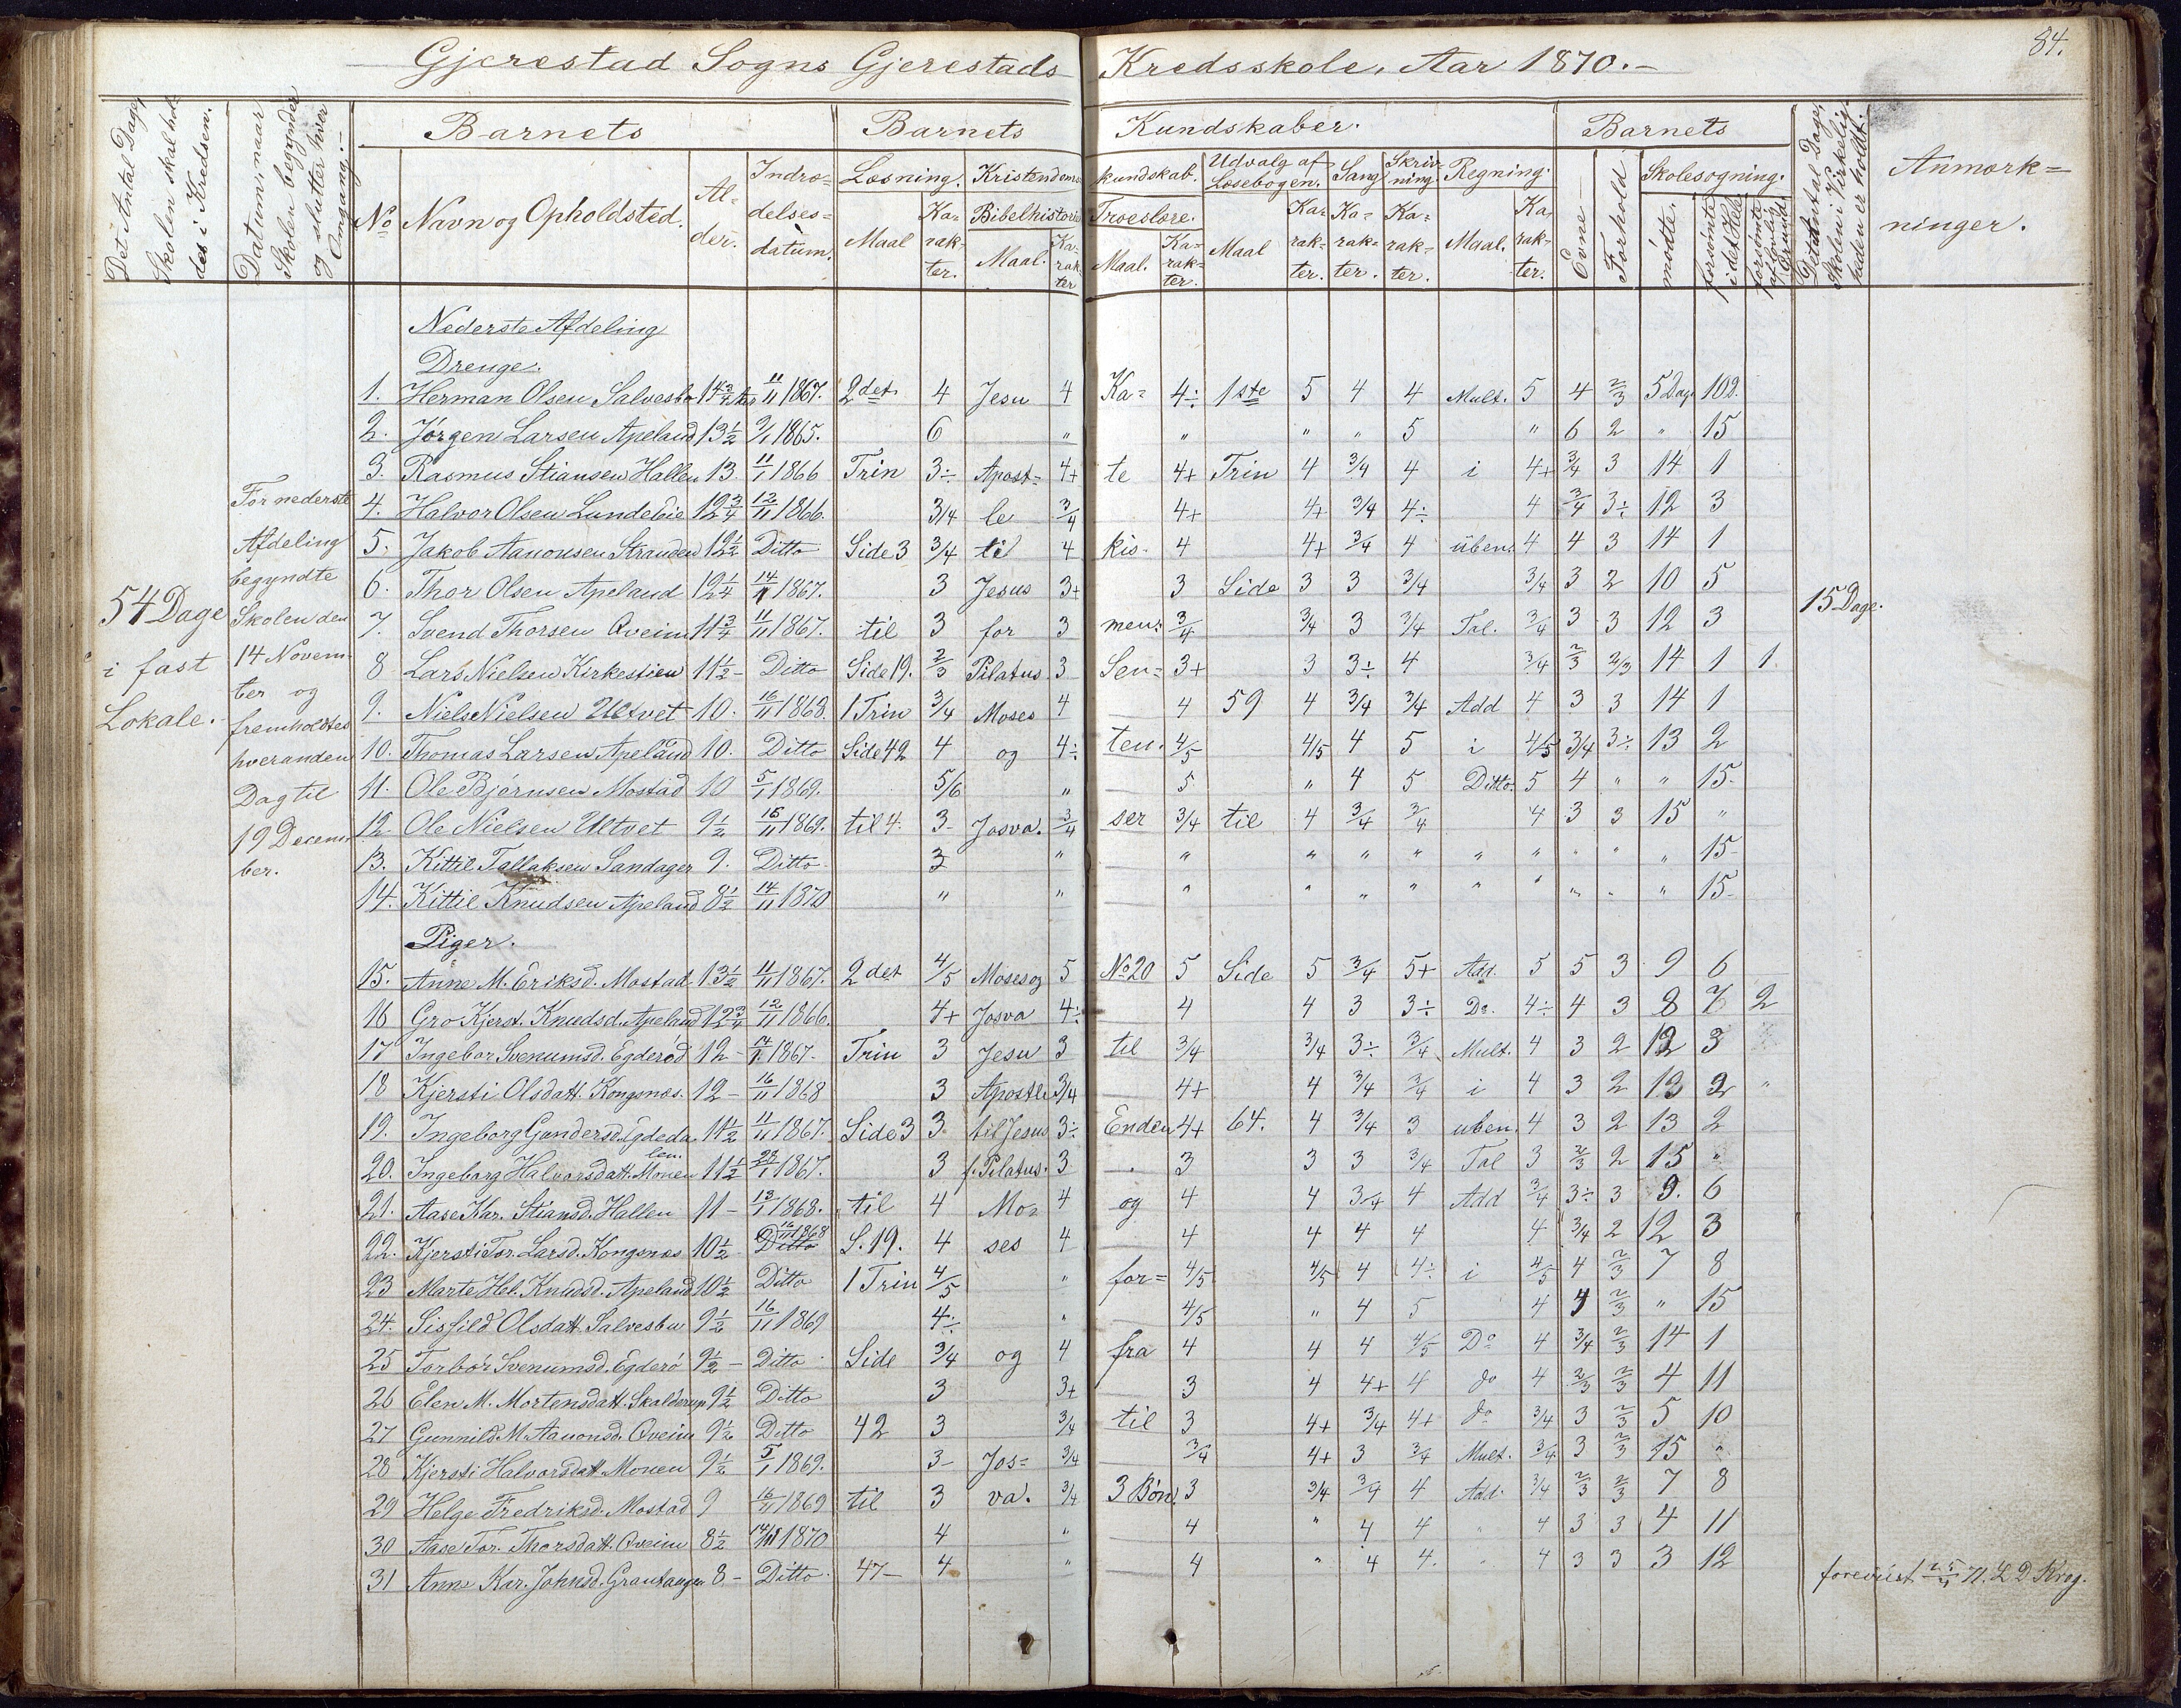 84.
Gjerestad Sogns Gjerestads Kredsskole, Aar 1870.
Det Antal Dage, Skolen skal holdes i Kredsen.
Datum, naar Skolen begynder og slutter hver Omgang.
Barnets
Barnets
Kundskaber.
Barnets
Det Antal Dage, Skolen i Virkeligheden er holdt.
Anmærkninger.
No
Navn og Opholdsted.
Alder.
Indrædelsesdatum.
Læsning.
Kristendomskundskab.
Udvalg af Læsebogen.
Sang
Skrivning.
Regning.
Evne
Forhold
Skolesøgning.
Maal
Karakter.
Bibelhistorie
Troeslære.
Maal.
Karakter
Maal.
Karakter.
Maal
Karakter.
Karakter.
Karakter.
Maal.
Karakter.
mødte.
forsømte i det Hele
forsømte af lovlig Grund
Nederste Afdeling
Drenge.
1. Herman Olsen Salvesbo 14 3/4 Aar 11/11 1867. 2det 4 Jesu 4 Ka= 4÷ 1ste 5 4 4 Mult. 5 4 2/3 5 Dage 102.
2. Jørgen Larsen Apeland 13 1/2 9/1 1865. 6 " " " " 5 " 6 2 " 15
3. Rasmus Stiansen Hallen 13. 11/1 1866 Trin 3÷ Apost= 4+ te 4+ Trin 4 3/4 4 i 4+ 3/4 3 14 1
4. Halvor Olsen Lundebie 12 3/4 12/11 1866. 3/4 le 3/4 4+ 4+ 3/4 4÷ 4 3/4 3÷ 12 3
5. Jakob Aanonsen Stranden 12 1/2 Ditto Side 3 3/4 til 4 kis- 4 4+ 3/4 4 üben. 4 4 3 14 1
6. Thor Olsen Apeland 12 1/4 14/1 1867. 3 Jesus 3+ 3 Side 3 3 3/4 3/4 3 2 10 5
7. Svend Thorsen Qveim 11 3/4 11/11 1867. til 3 for 3 men= 3/4 3/4 3 3/4 Tal. 3/4 3 3 12 3
8 Lars Nielsen Kirkestien 11 1/2 - Ditto Side 19. 2/3 Pilatus 3 Sen= 3+ 3 3÷ 4 3/4 2/3 2/3 14 1 1.
9. Niels Nielsen Ultvet 10. 16/11 1868. 1 Trin 3/4 Moses 4 4 59 4 3/4 3/4 Add 4 3 3 14 1
10. Thomas Larsen Apeland 10. Ditto Side 42 4 og 4÷ ten. 4/5 4/5 4 5 i 4/5 3/4 3÷ 13 2
11. Ole Bjørnsen Mostad 10 5/1 1869. 5/6 " 5 " 4 5 Ditto. 5 4 " " 15.
12. Ole Nielsen Ultvet 9 1/2 16/11 1869. til 4. 3- Josva. 3/4 ser 3/4 til 4 3/4 3/4 4 3 3 15 "
13. Kittil Tallaksen Sandager 9. Ditto 3 " " " " " " " " " " 15-
14. Kittil Knudsen Apeland 8 1/2 14/11 1870 " " " " " " " " " " " 15-
Piger.
15. Anne M. Eriksd. Mostad 13 1/2 11/11 1867. 2det 4/5 Moses og 5 No 20 5 Side 5 3/4 5+ Add. 5 5 3 9 6
16 Gro Kjerst. Knudsd. Apeland 12 3/4 12/11 1866. 4+ Josva 4÷ 4 4 3 3÷ Do. 4÷ 4 3 8 7 2
17 Ingebor Svenumsd. Egderød 12 - 14/1 1867. Trin 3 Jesu 3 til 3/4 3/4 3÷ 3/4 Mult. 4 3 2 12 3
18 Kjersti Olsdatt. Kongsnæs. 12 - 16/11 1868 3 Apostle 3/4 4+ 4 3/4 3/4 i 4 3 2 13 2 "
19. Ingeborg Gundersd. Egdedalen. 11 1/2 11/11 1867. Side 3 3 til Jesus 3÷ Enden 4+ 64. 4 3/4 3 uben. 4 3 2 13 2
20. Ingeborg Halvorsdatt. Monen 11 1/2 28/1 1867. 3 f. Pilatus. 3 . 3 3 3 3/4 Tal 3 2/3 2 15 "
21. Aase Kar. Stiansd. Hallen 11 - 13/1 1868. til 4 Mo= 4 og 4 4 3/4 4 Add 3/4 3÷ 3 9. 6
22. Kjersti Tor. Larsd. Kongsnæs 10 1/2 16/11 1868 Ditto S. 19. 4 ses 4 4 4 4 4 4 3/4 2 12 3
23 Marte Hel. Knudsd. Apeland 10 1/2 Ditto 1 Trin 4/5 " for= 4/5 4/5 4 4÷ i 4/5 4 2/3 7 8
24. Sisfild Olsdatt. Salvesbu 9 1/2 16/11 1869 4÷ " 4/5 " 4 5 4 4 2/3 " 15
25 Torbør Svenumsd. Egderø 9 1/2 - Ditto Side 3/4 og 4 fra 4 4 4 4/5 Do 4 3/4 2/3 14 1
26 Elen M. Mortensdatt. Skalderup 9 1/2 Ditto 3 3+ 3 4 4+ 4 do 4 2/3 2/3 4 11
27 Gunnild M. Aanonsd. Qveim 9 1/2 Ditto 42 3 3/4 til 3 4+ 3/4 4+ do 3/4 3 2/3 5 10
28 Kjersti Halvorsdatt. Monen 9 1/2 5/1 1869. 3- Jos= 3/4 3/4 4+ 3 3/4 Mult. 3/4 3 2/3 15 "
29 Helge Fredriksd. Mostad 9 16/11 1869 til 3 va. 3/4 3 Bøn. 3 3/4 3/4 4 Add. 3/4 2/3 2/3 7 8
30 Aase Tor. Thorsdatt. Qveim 8 1/2 14/11 1870 4 " 4 " 4 4 " 4 3 3 4 11
31 Anne Kar. Johnsd. Grautangen 8 - Ditto. 47- 4 " 4 " 4 4. " 4 3 3 3 12
54 Dage
i fast
Lokale.
For nederste
Afdeling
begyndte
Skolen den
14 Novem-
ber og
fremholdtes
hveranden
Dag til
19 Decem-
ber.
15 Dage.
foreviist 25/4 71. L D Krog.